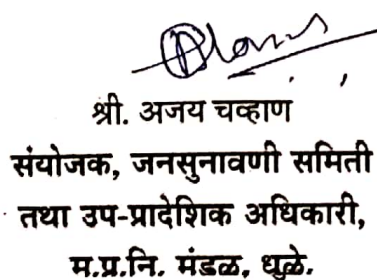 श्री. अजय चव्हाण
संयोजक, जनसुनावणी समिती
तथा उप-प्रादेशिक अधिकारी,
म.प्र.नि. मंडळ, धुळे.